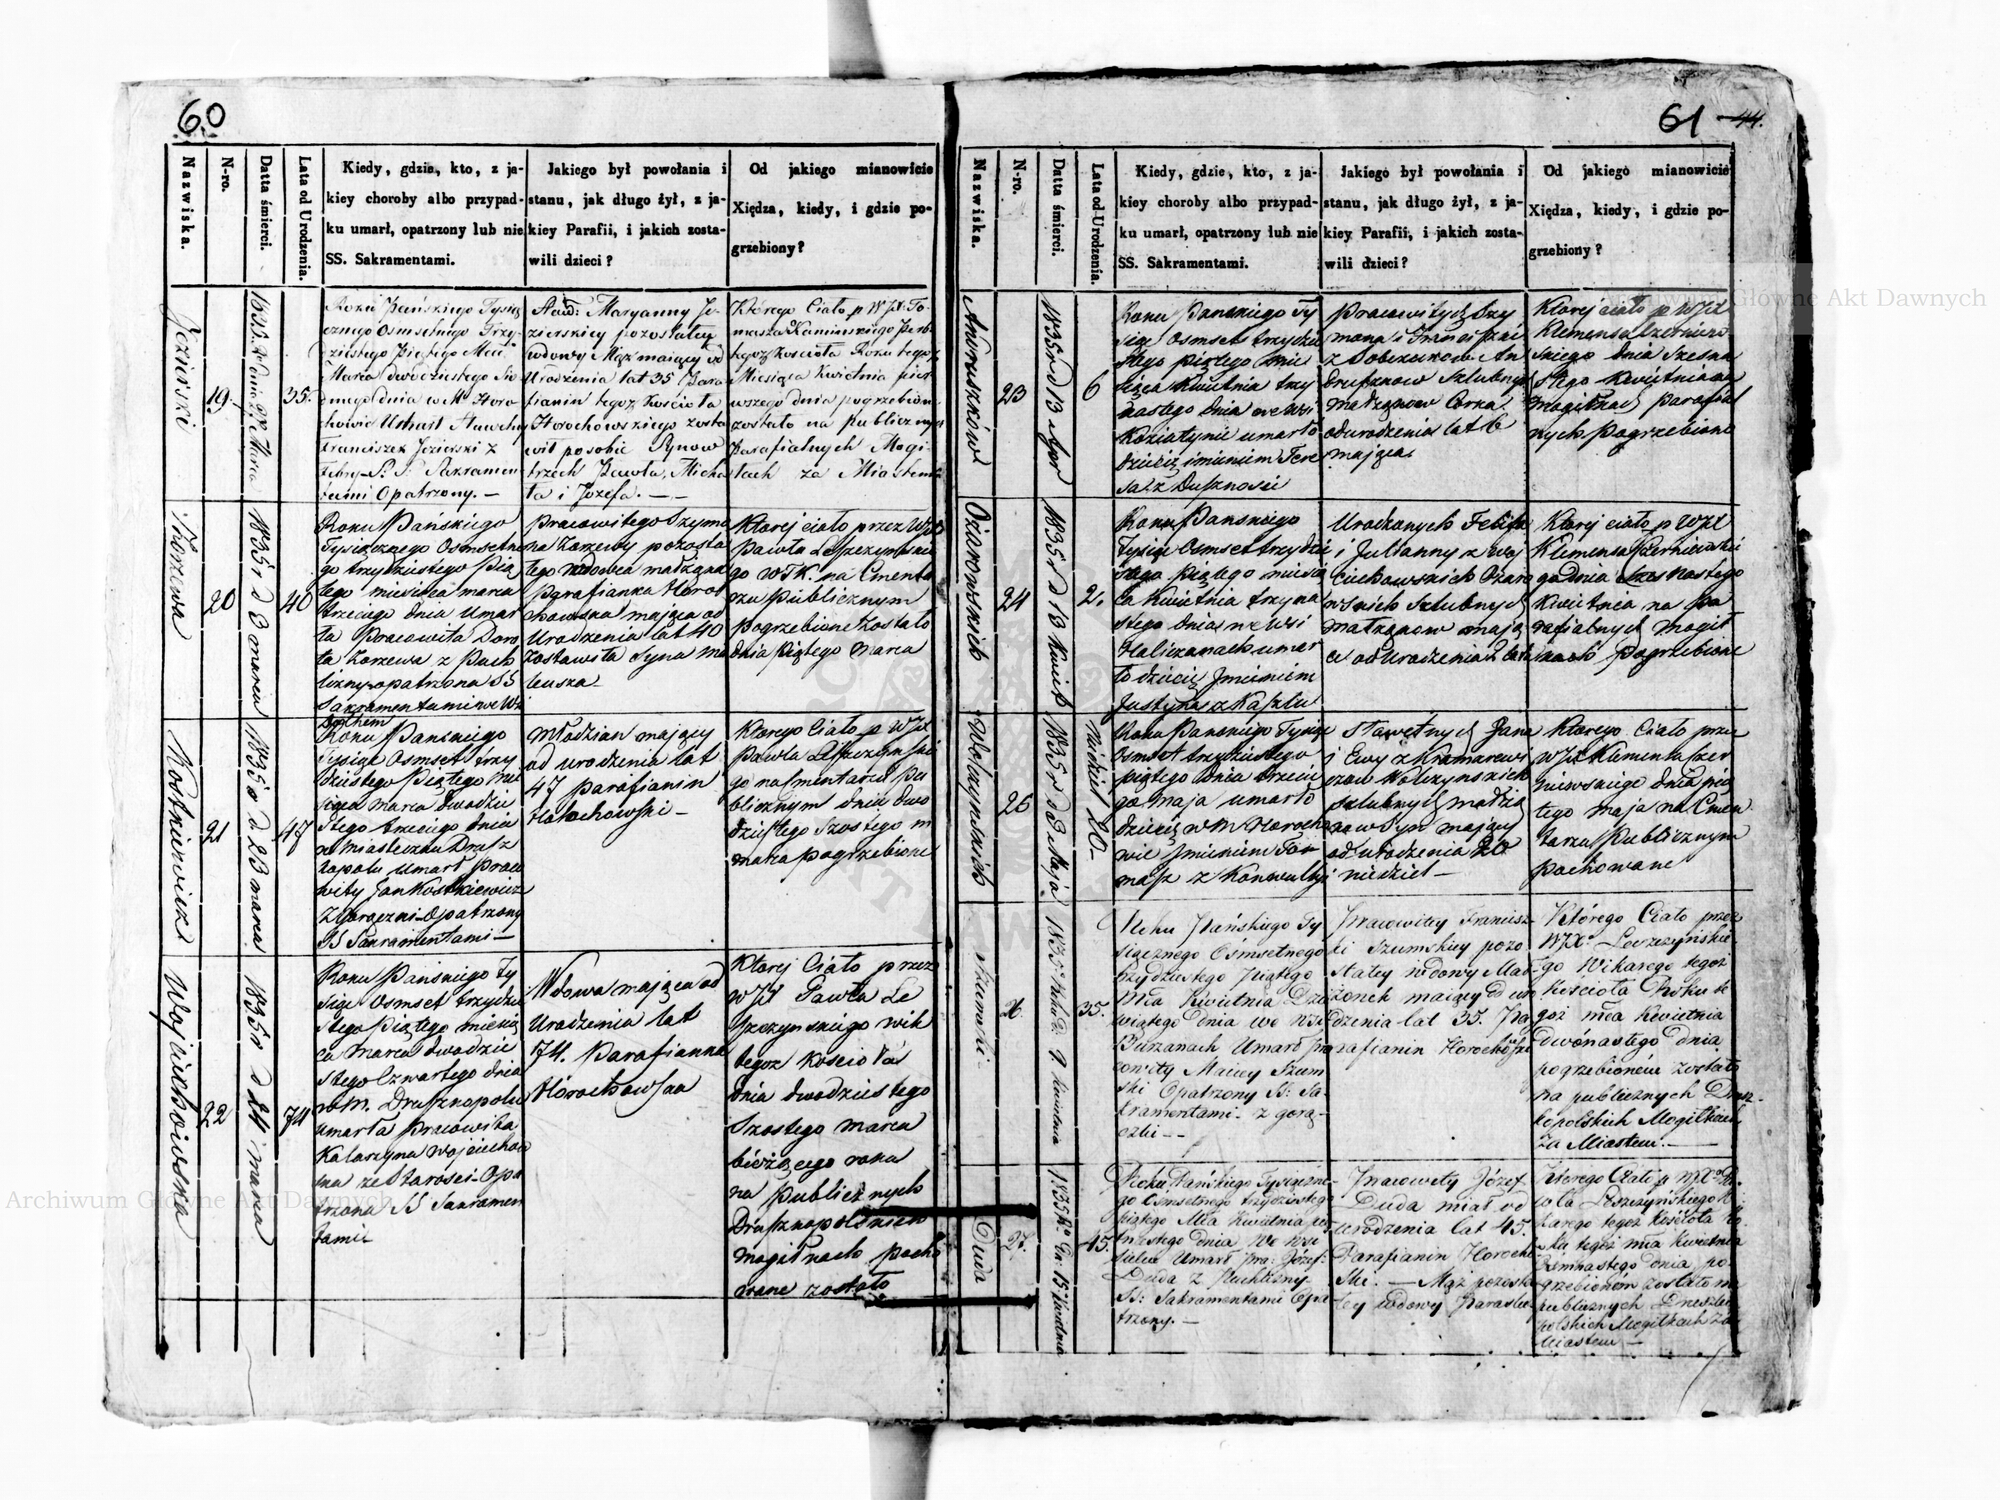 60
Nazwiska.
N-ro.
Datta śmierci.
Lata od Urodzenia.
Kiedy, gdzie, kto, z ja-
kiey choroby albo przypad-
ku umarł, opatrzony lub nie
SS. Sakramentami.
Jakiego był powołania i
stanu, jak długo żył, z ja-
kiey Parafii, i jakich zosta-
wili dzieci?
Od jakiego mianowicie
Xiędza, kiedy, i gdzie po-
grzebiony?
Jezierski
19.
35.
Roku Pańskiego Tysią
cznego Osmsetnego Trzy
dziestego Piątego Mca
Marca dwudziestego Sio
dmego dnia w M. Horo
chowie Umarł
Franciszek Jezierski z
Febry S. S. Sakramen
tami Opatrzony. —
Maryanny Je
zierskiey pozostałey
wdowy Mąż maiący od
Urodzenia lat 35 Para
fianin tegoż Kościoła
Horochowskiego zosta
wił po sobie Synow
trzech Pawła, Micha
ła i Jozefa. —
Którego Ciało p. W JX To
masza Kaminskiego
tegoż Kościoła Roku tegoż
Miesiąca Kwietnia pier
wszego dnia pogrzebione
zostało na publicznych
Parafialnych Mogi
łach za Miastem
Korzewa
20
1835 r d 3 marca
40
Roku Pańskiego
Tysiącznego Osmsetne
go trzydziestego Pią
tego miesiąca marca
trzeciego dnia Umar
ła Pracowita Doro
ta Korzewa z Puch
lizny opatrzona SS
Sakramentami we Wsi
pracowitego Szymo
na Korzewy pozosta
łego wdowca małżąka
parafianka Horo
chowska mająca od
Urodzenia lat 40
Zostawiła Syna Ma
teusza
Ktorej ciało przez WJX
Pawła Leszczynskie
go WTK. na Cmenta
rzu Publicznym
pogrzebione Zostało
dnia piątego Marca
Kostkiewicz
21
1835 r d 23 marca
47
Roku Panskiego
Tysiąc Osmset trzy
dziestego Piątego Mie
siąca marca dwudzie
stego trzeciego dnia
w Miasteczku Drusz
kopolu umarł praco
wity Jan Kostkiewicz
z Gorączki opatrzony
SS Sakramentami —
młodzian mający
od urodzenia lat
47 parafianin
Horochowski —
Ktorego Ciało p WJX
Pawła Leszczynskie
go na Smentarzu pu
blicznym dnia dwu
dziestego Szostego m
marca pogrzebione
Wojciechowska
22
1835 r d 24 marca
74
Roku Pańskiego Ty
siąc Osmset trzydzie
stego Piątego miesią
ca marca dwudzie
stego Czwartego dnia
w M. Druszkopolu
umarła Pracowita
Katarzyna Wojciechow
ska ze Starosci Opa
trzona SS Sakramen
tami
Wdowa mająca od
Urodzenia lat
74. parafianka
Horochowska
Ktorej Ciało przez
WJX Pawła Le
szczynskiego wik
tegoz Kościoła
dnia dwudziestego
Szostego marca
bieżącego roku
na publicznych
Druszkopolskich
mogiłkach pocho
wane zostało
61 44.
Nazwiska.
N-ro.
Datta śmierci.
Lata od Urodzenia.
Kiedy, gdzie, kto, z ja-
kiey choroby albo przypad-
ku umarł, opatrzony lub nie
SS. Sakramentami.
Jakiego był powołania i
stanu, jak długo żył, z ja-
kiey Parafii, i jakich zosta-
wili dzieci?
Od jakiego mianowicie
Xiędza, kiedy, i gdzie po-
grzebiony?
Andruszków
23
6
Roku Panskiego Ty
siąc Osmset trzydzie
stego piątego mie
siąca Kwietnia trzy
nastego dnia we wsi
Koziatynie umarło
dziecię imieniem Tere
sa z Duszności
pracowitych Szy
mona i Franciszki
z An
druszkow Szlubnych
małżąkow Corka
od urodzenia lat 6
mająca
Ktorej ciało p WJX
Klemensa Czerniew
skiego dnia Szesna
stego Kwietnia na
mogiłkach parafial
nych pogrzebione
Ożarowskich
24
1835 r d 13 Kwiet
2.
Roku Panskiego
Tysiąc Osmset trzydzie
stego Piątego miesią
ca Kwietnia trzyna
stego dnia we Wsi
Haliczanach umar
ło dziecię Imieniem
Justyna z Kaszlu
Urodzonych Felixa
i Julianny z Woj
ciechowskich Ożaro
wskich Szlubnych
małżąkow mają
ca od Urodzenia 2 lata
Ktorej ciało p WJX
Klemensa Czerniewskie
go dnia Szesnastego
Kwietnia na pa
rafialnych mogił
kach pogrzebione
Wołczynskich
25
1835 r d 3 Maja
Niedziel 20
Roku Panskiego Tysiąc
Osmset trzydziestego
piątego dnia trzecie
go maja umarło
dziecię w M Horocho
wie Jmieniem To
masz z Konwulsyi
Sławetnych Jana
i Ewy z Kramarewi
czow Wołczynskich
szlubnych małżą
kow Syn mający
od urodzenia 20
niedziel —
Ktorego Ciało przez
WJX Klemensa Czer
niewskiego dnia pią
tego maja na Cmen
tarzu Publicznym
pochowane
Szumski
26
35.
Roku Pańskiego Ty
siącznego Ośmsetnego
trzydziestego Piątego
Mca Kwietnia Dzie
wiątego Dnia we wsi
Burzanach Umarł pra
cowity Maciey Szum
ski Opatrzony SS: Sa
kramentami z gorą
czki —
Pracowitey Francisz
ki Szumskiey pozo
stałey wdowy Mał
żonek maiący od uro
dzenia lat 35. Pa
rafianin Horochowski
Którego Ciało przez
WJXa Leszczyńskie
go Wikarego tegoż
Kościoła Roku te
goż mca Kwietnia
dwónastego dnia
pogrzebione zostało
na publicznych Drusz
kopolskich Mogiłkach
za Miastem. —
Duda
27.
45.
Roku Pańskiego Tysiączne
go Ośmsetnego trzydziestego
piątego Mca Kwietnia pię
tnastego dnia We wsi
Umarł Pra: Józef
Duda z Puchliny
SS: Sakramentami Opa
trzony. —
Pracowity Józef
Duda miał od
urodzenia lat 45.
Parafianin Horocho
ski. — Mąż pozosta
łey wdowy
Którego Ciało p WJXa Pa
wła Leszczyńskiego Wi
karego tegoż Kościoła Ro
ku tegoż mca Kwietnia
Osmnastego dnia po
grzebionem zostało na
publicznych Druszko
polskich Mogiłkach za
Miastem —
Archiwum Główne Akt Dawnych
Archiwum Główne Akt Dawnych